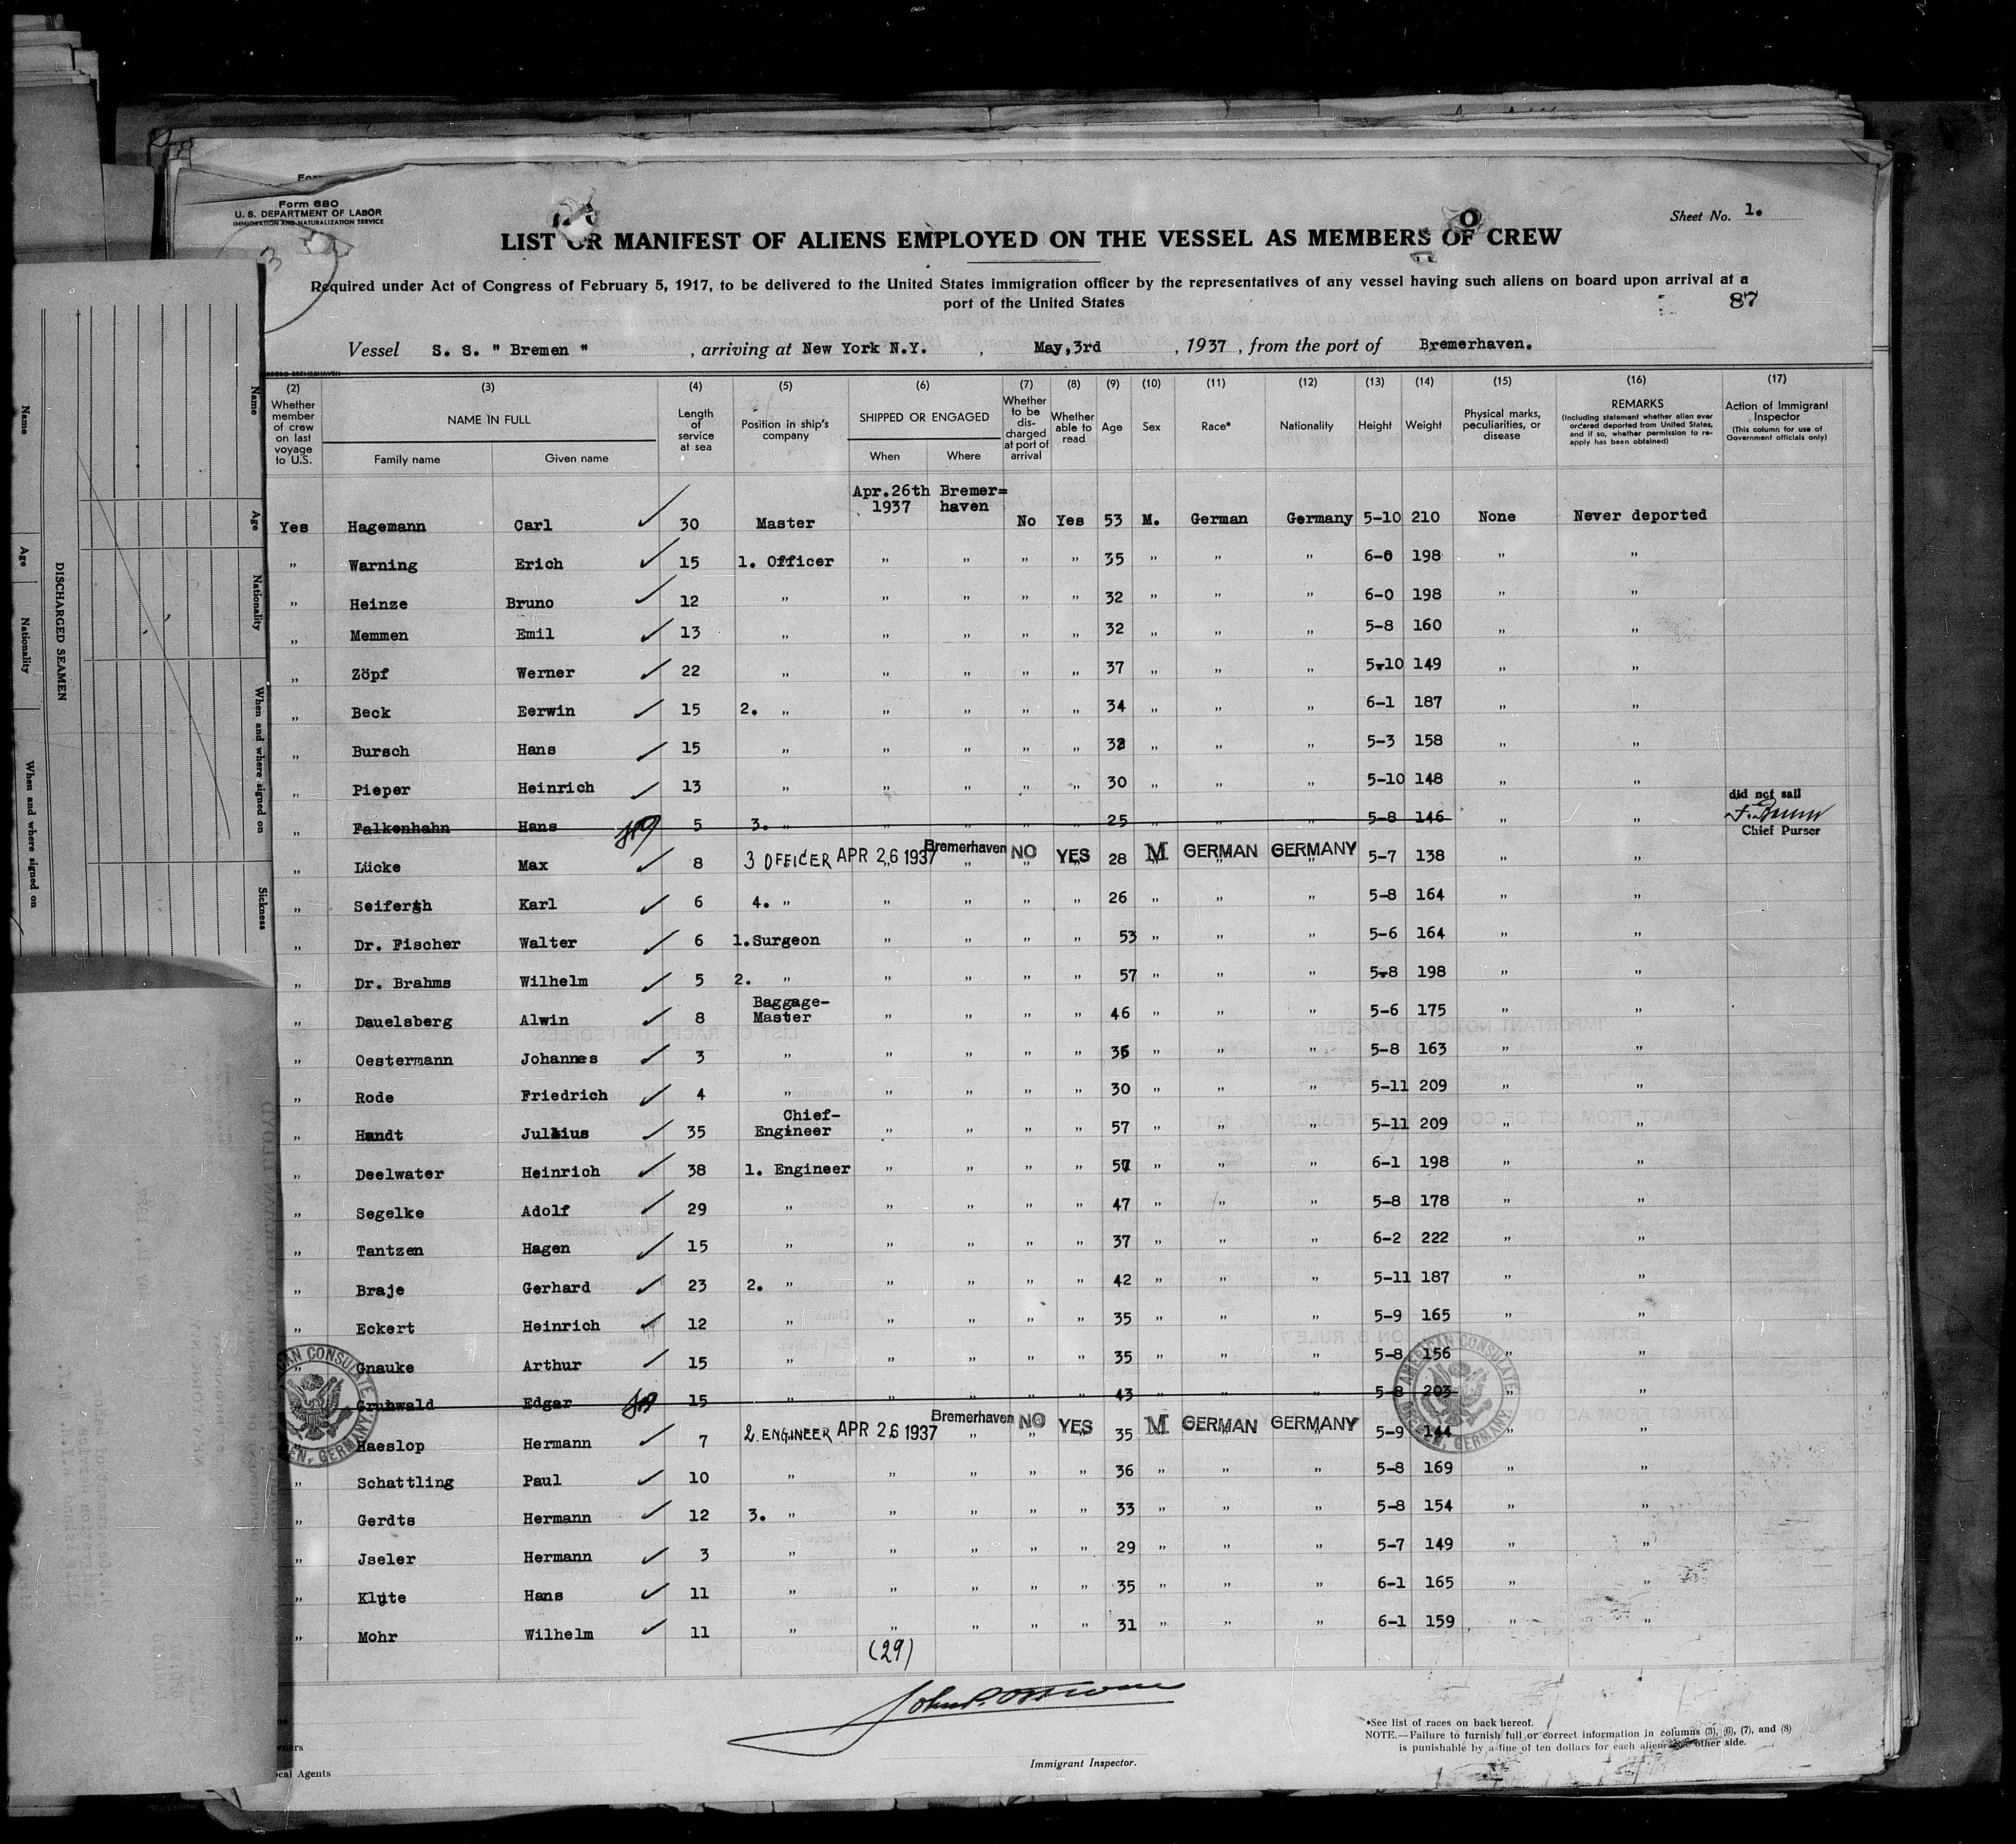 Form 680
U. S. DEPARTMENT OF LABOR
IMMIGRATION AND NATURALIZATION SERVICE
Sheet No. 1.
LIST OR MANIFEST OF ALIENS EMPLOYED ON THE VESSEL AS MEMBERS OF CREW
Required under Act of Congress of February 5, 1917, to be delivered to the United States immigration officer by the representatives of any vessel having such aliens on board upon arrival at a
port of the United States
87
Vessel S. S. " Bremen " , arriving at New York N.Y. , May,3rd , 1937 , from the port of Bremerhaven.
(2) (3) (4) (5) (6) (7) (8) (9) (10) (11) (12) (13) (14) (15) (16) (17)
Whether member of crew on last voyage to U.S.
NAME IN FULL
Family name Given name
Length of service at sea
Position in ship's company
SHIPPED OR ENGAGED
When Where
Whether to be discharged at port of arrival
Whether able to read
Age
Sex
Race*
Nationality
Height
Weight
Physical marks, peculiarities, or disease
REMARKS
(Including statement whether alien ever ordered deported from United States, and if so, whether permission to reapply has been obtained)
Action of Immigrant Inspector
(This column for use of Government officials only)
Apr.26th Bremer=
1937 haven
Yes Hagemann Carl 30 Master No Yes 53 M. German Germany 5-10 210 None Never deported
" Warning Erich 15 1. Officer " " " " 35 " " " 6-0 198 " "
" Heinze Bruno 12 " " " " " 32 " " " 6-0 198 " "
" Memmen Emil 13 " " " " " 32 " " " 5-8 160 " "
" Zöpf Werner 22 " " " " " 37 " " " 5-10 149 " "
" Beck Eerwin 15 2. " " " " " 34 " " " 6-1 187 " "
" Bursch Hans 15 " " " " " 32 " " " 5-3 158 " "
" Pieper Heinrich 13 " " " " " 30 " " " 5-10 148 " "
did not sail
" Falkenhahn Hans 5 3. " " " " " 25 " " " 5-8 146 " "
Chief Purser
" Lücke Max 8 3 OFFICER APR 26 1937 Bremerhaven NO YES 28 M GERMAN GERMANY 5-7 138 " "
" Seiferth Karl 6 4. " " " " " 26 " " " 5-8 164 " "
" Dr. Fischer Walter 6 1.Surgeon " " " " 53 " " " 5-6 164 " "
" Dr. Brahms Wilhelm 5 2. " " " " " 57 " " " 5-8 198 " "
" Dauelsberg Alwin 8 Baggage-Master " " " " 46 " " " 5-6 175 " "
" Oestermann Johannes 3 " " " " " " " " 5-8 163 " "
" Rode Friedrich 4 " " " " " 30 " " " 5-11 209 " "
" Handt Julius 35 Chief-Engineer " " " " 57 " " " 5-11 209 " "
" Deelwater Heinrich 38 1. Engineer " " " " 57 " " " 6-1 198 " "
" Segelke Adolf 29 " " " " " 47 " " " 5-8 178 " "
" Tantzen Hagen 15 " " " " " 37 " " " 6-2 222 " "
" Braje Gerhard 23 2. " " " " " 42 " " " 5-11 187 " "
" Eckert Heinrich 12 " " " " " 35 " " " 5-9 165 " "
" Gnauke Arthur 15 " " " " " 35 " " " 5-8 156 " "
" Edgar 15 " " " " " 43 " " " 5-8 203 " "
" Haeslop Hermann 7 2. ENGINEER APR 26 1937 Bremerhaven NO YES 35 M GERMAN GERMANY 5-9 144 " "
" Schattling Paul 10 " " " " " 36 " " " 5-8 169 " "
" Gerdts Hermann 12 3. " " " " " 33 " " " 5-8 154 " "
" Jseler Hermann 3 " " " " " 29 " " " 5-7 149 " "
" Klute Hans 11 " " " " " 35 " " " 6-1 165 " "
" Mohr Wilhelm 11 " " " " " 31 " " " 6-1 159 " "
(29)
AMERICAN CONSULATE
BREMEN, GERMANY
Immigrant Inspector.
*See list of races on back hereof.
NOTE.—Failure to furnish full or correct information in columns (3), (6), (7), and (8)
is punishable by a fine of ten dollars for each alien. See other side.
Local Agents
DISCHARGED SEAMEN
Name
Age
Nationality
When and where signed on
Sickness
Name
Age
Nationality
When and where signed on